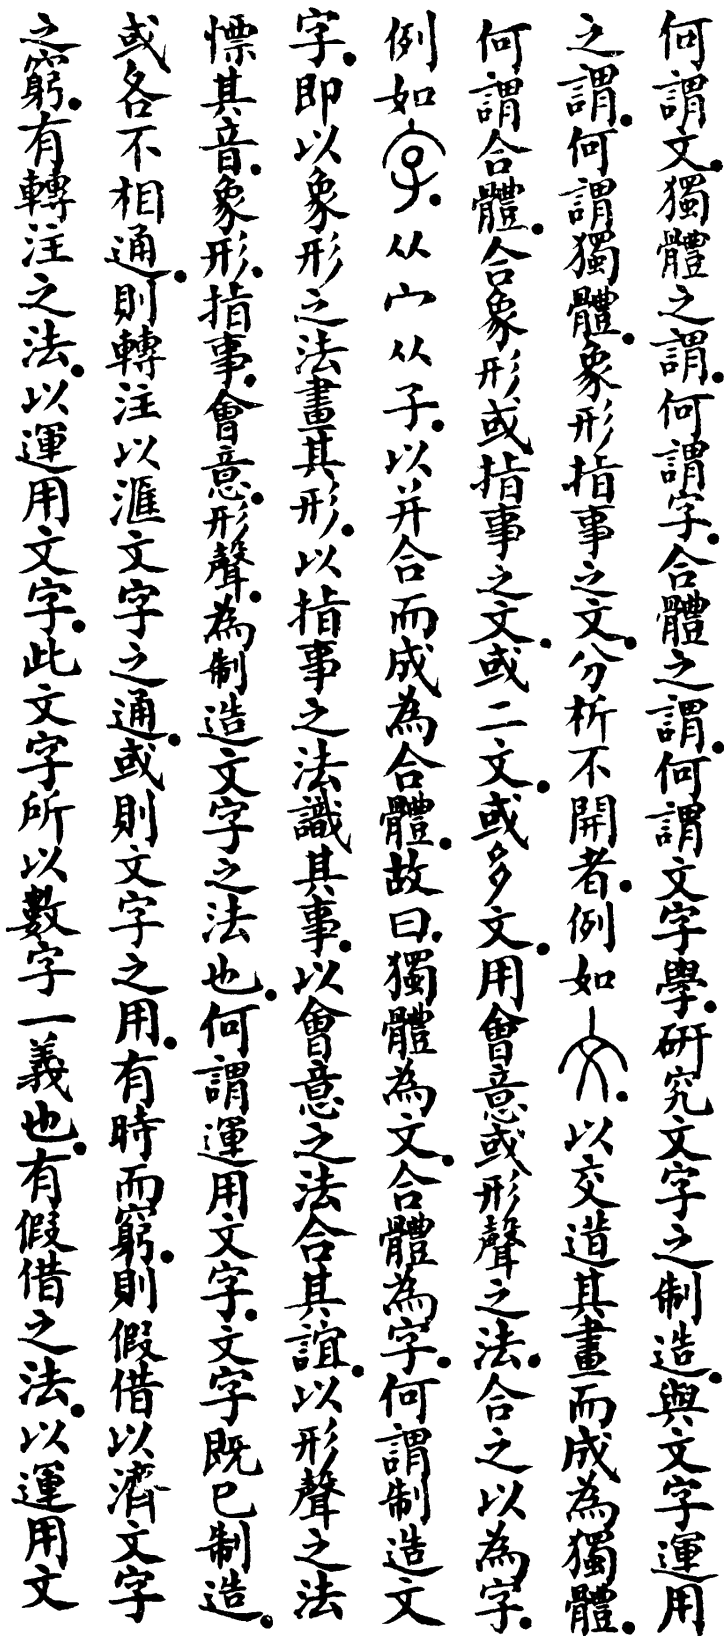 何謂文.獨體之謂.何謂字.合體之謂.何謂文字學.研究文字之制造.與文字運用
之謂.何謂獨體.象形指事之文.分析不開者.例如文.以交遒其畫而成為獨體.
何謂合體.合象形或指事之文.或二文.或多文.用會意或形聲之法.合之以為字.
例如字.从宀从子.以并合而成為合體.故曰.獨體為文.合體為字.何謂制造文
字.即以象形之法畫其形.以指事之法識其事.以會意之法合其誼.以形聲之法
慓其音.象形.指事.會意.形聲.為制造文字之法也.何謂運用文字.文字既已制造.
或各不相通.則轉注以滙文字之通.或則文字之用.有時而窮.則假借以濟文字
之窮.有轉注之法.以運用文字.此文字所以數字一義也.有假借之法.以運用文